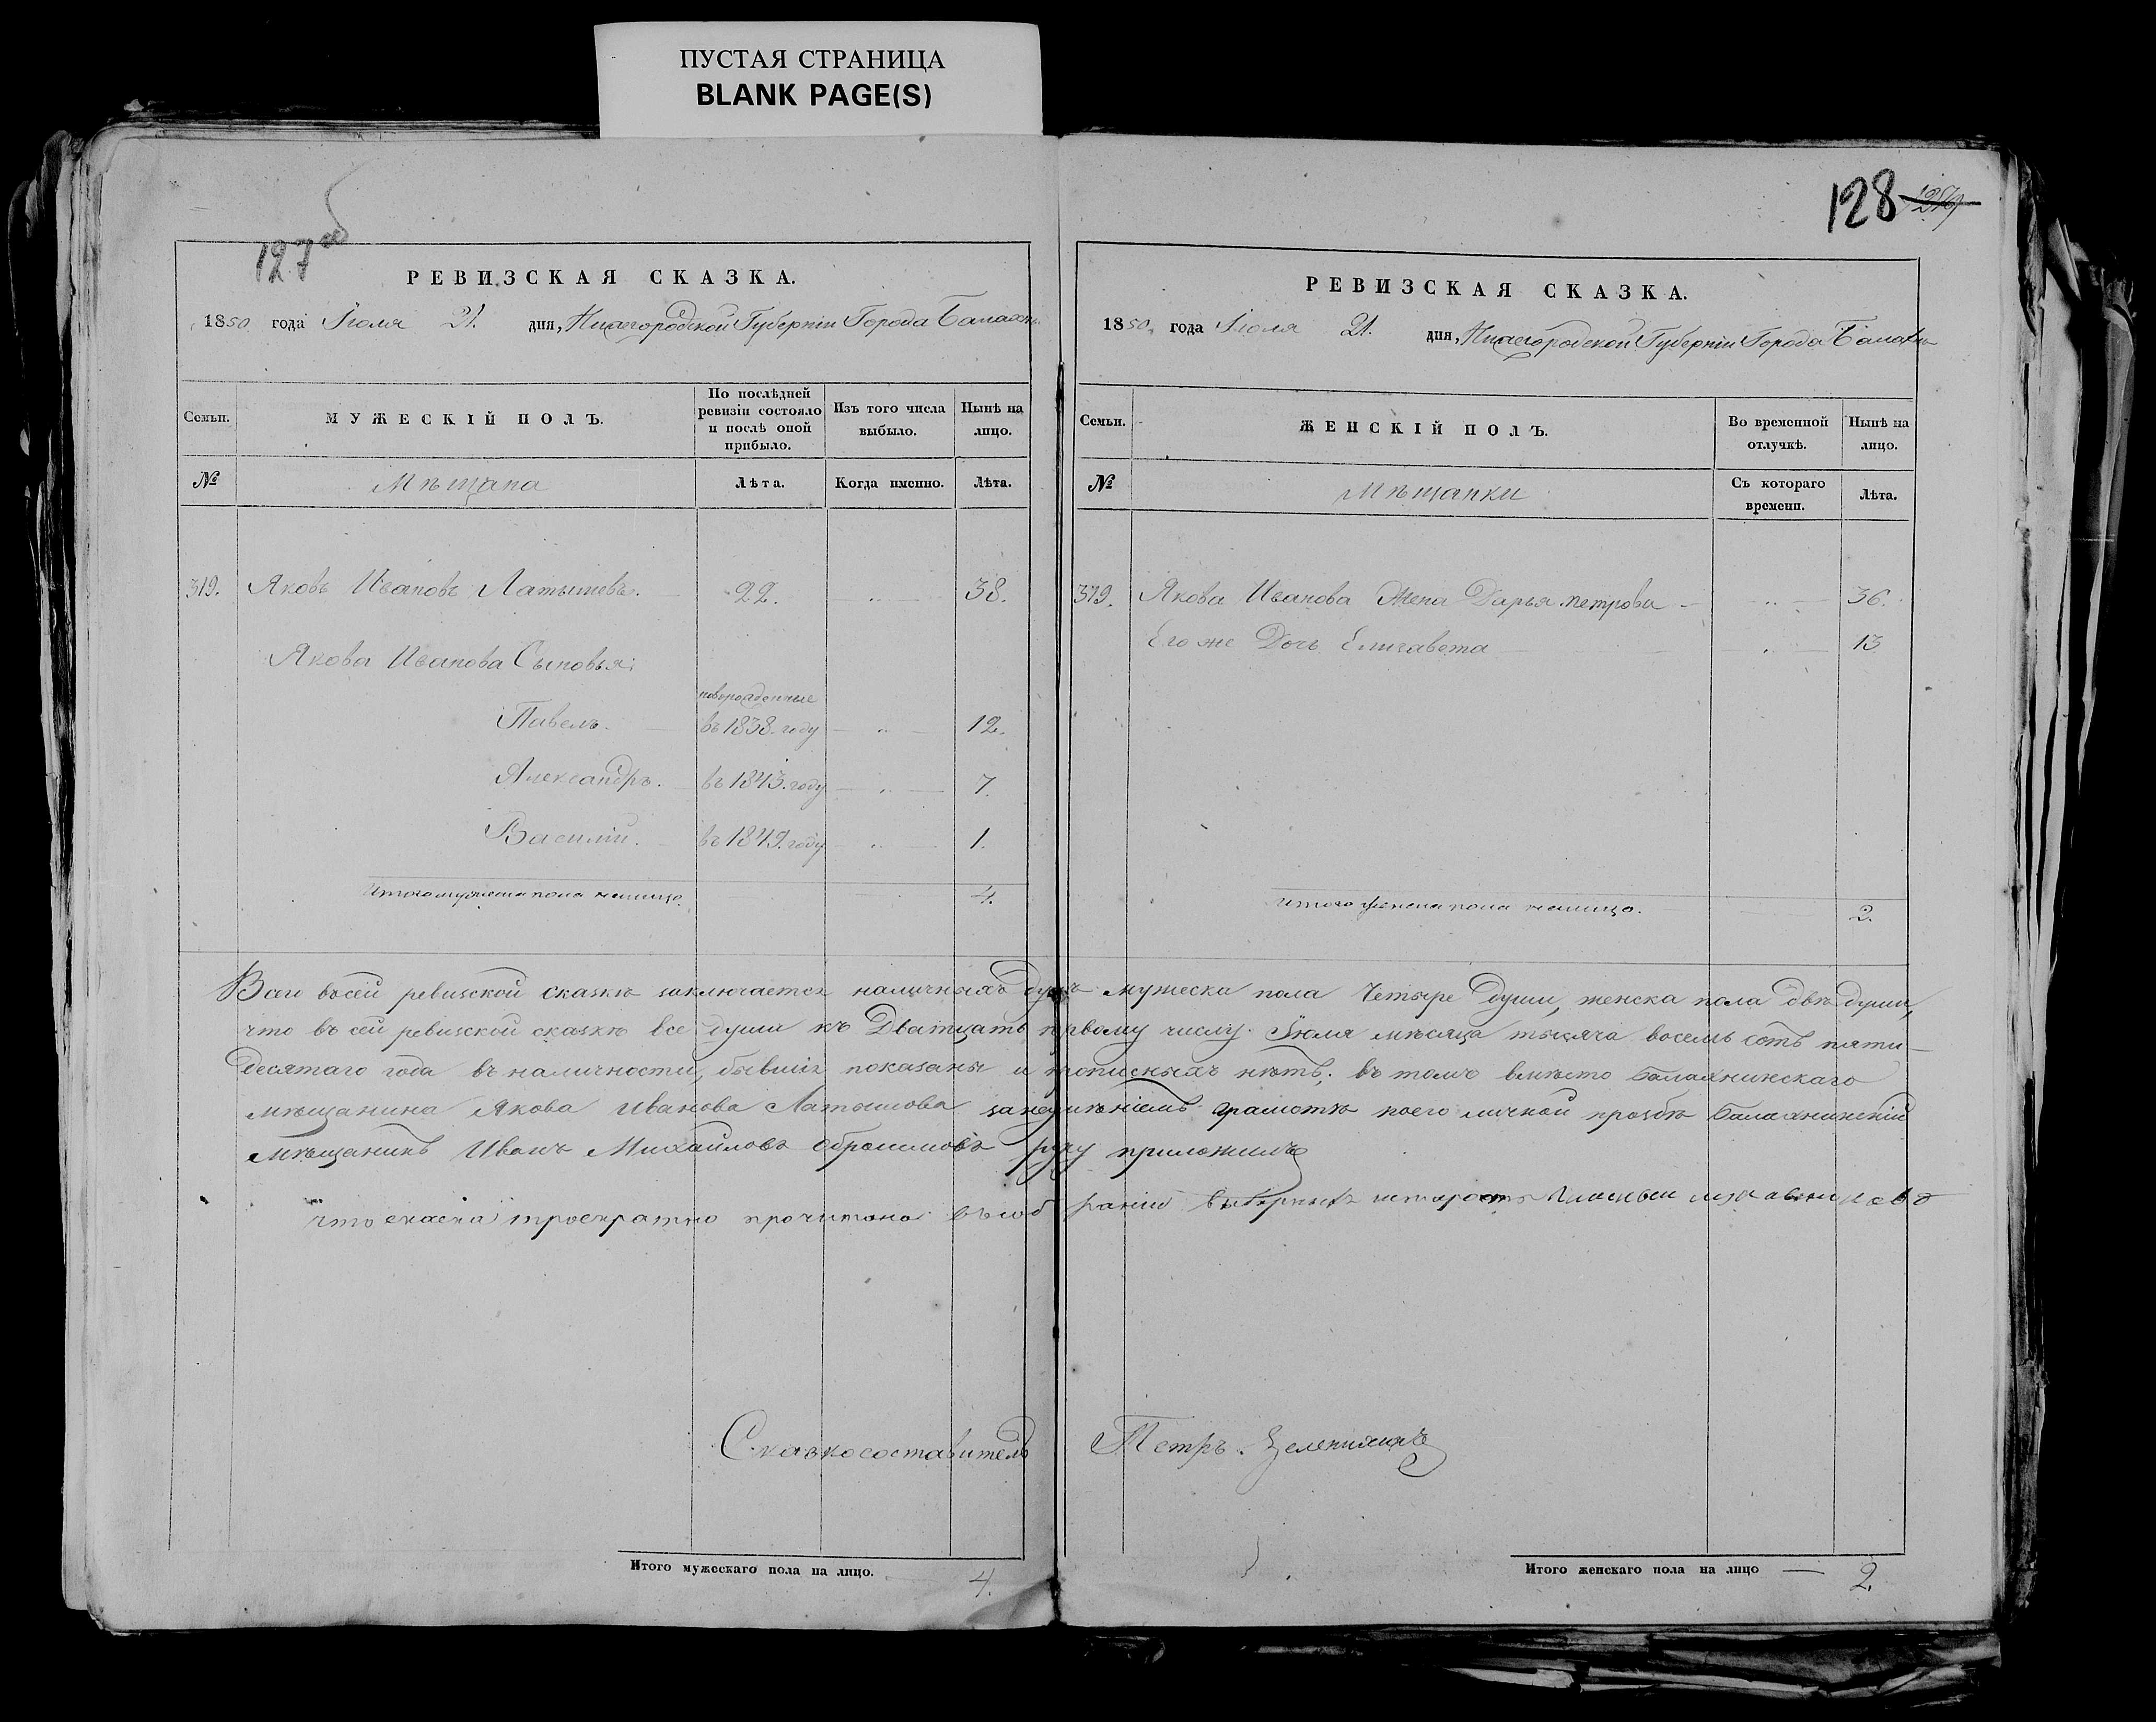 ПУСТАЯ СТРАНИЦА
BLANK PAGE(S)
127 об
РЕВИЗСКАЯ СКАЗКА.
1850 года Іюля 21. дня, Нижегородской Губерніи Города Балахны
Семьи.
МУЖЕСКІЙ ПОЛЪ.
По послѣдней ревизіи состояло и послѣ оной прибыло.
Изъ того числа выбыло.
Нынѣ на лицо.
№ Мѣщана Лѣта. Когда именно. Лѣта.
319. Яковъ Ивановъ Латышевъ. 22. 38.
Якова Иванова Сыновья:
новорожденные
Павелъ. въ 1838. году 12.
Александръ. въ 1843. году 7.
Василій. въ 1849. году 1.
Итого мужеска пола налицо. 4.
128
РЕВИЗСКАЯ СКАЗКА.
1850. года Іюля 21. дня, Нижегородской Губерніи Города Балахны
Семьи.
ЖЕНСКІЙ ПОЛЪ.
Во временной отлучкѣ.
Нынѣ на лицо.
№ Мѣщанки Съ котораго времени. Лѣта.
319. Якова Иванова Жена Дарья петрова 36.
Его же Дочь Елизавета 13
Итого женска пола налицо. 2.
Всего въсей ревизской сказкѣ заключается наличныхъ душъ мужеска пола Четыре души, женска пола двѣ души,
что въ сей ревизской сказкѣ все души къ Дватцать первому числу Іюля мѣсяца тысяча восемь сотъ пяти-
десятаго года въ наличности, бывшіе показаны и прописныхъ нѣтъ; въ томъ вмѣсто балахнинскаго
мѣщанина Якова Иванова Латышова занеумѣніемъ грамотѣ поего личной прозбѣ балахнинскій
мѣщанинъ Иванъ Михайловъ руку приложилъ
что скаска троекратно прочитана
Сказкосоставитель Петръ
Итого мужескаго пола на лицо. 4.
Итого женскаго пола на лицо 2.